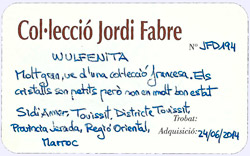 Col·lecció Jordi Fabre
Nº JFD194
WULFENITA
Molt gran, ve d'una col·lecció francesa. Els
cristalls son petits però en molt bon estat
Sidi Amor, Touissit, Districte Touissit,
Trobat:
Província Jerada, Regió Oriental,
Adquisició: 24/06/2014
Marroc